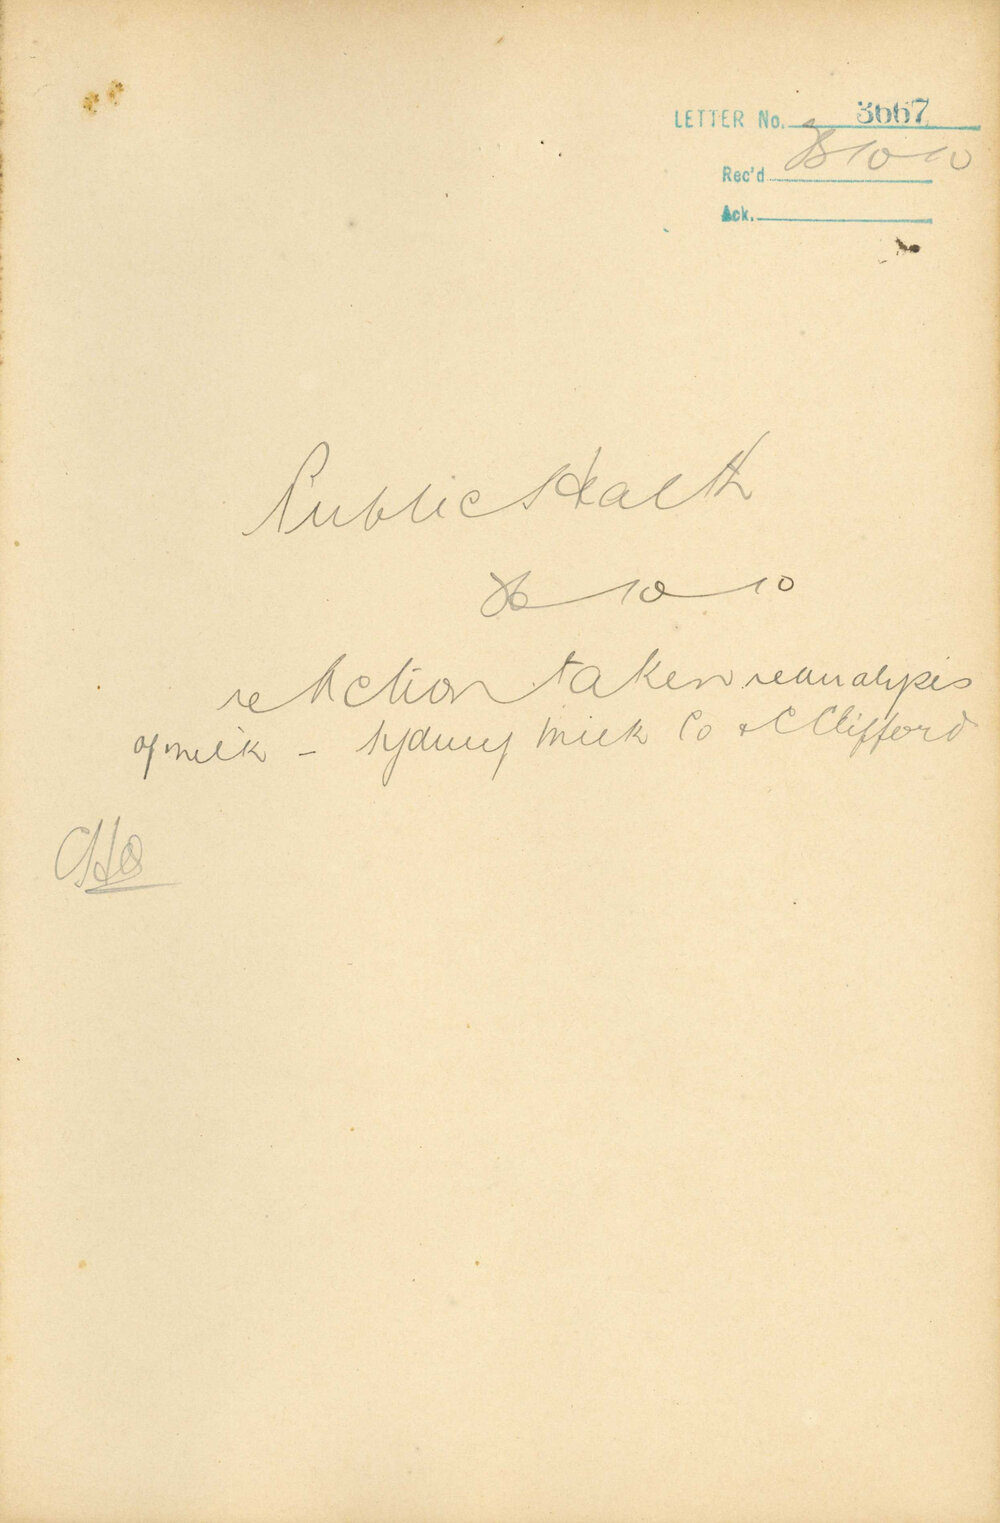 LETTER No. 3667
Rec'd 10 10
Ack.
Public Health
10 10
re Action taken re analysis
of milk - Sydney Milk Co & C Clifford